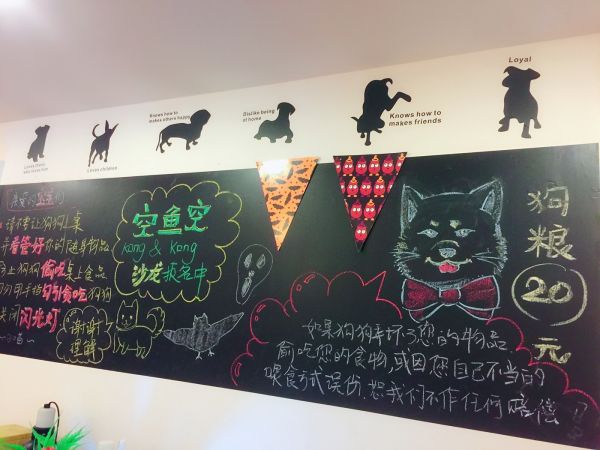 Loves children
Knows how to
makes others happy
Dislike being
at home
Knows how to
makes friends
Loyal
请不要让狗狗上桌
看管好你的随身物品
止狗狗偷吃桌上食品
勿用手指勾引贪吃狗狗
关闭闪光灯
谢谢
理解
空鱼空
Kong & Kong
沙龙报名中
如果狗狗弄坏了您的物品
偷吃您的食物,或因您自己不当的
喂食方式误伤,恕我们不作任何赔偿!
狗
粮
20
元